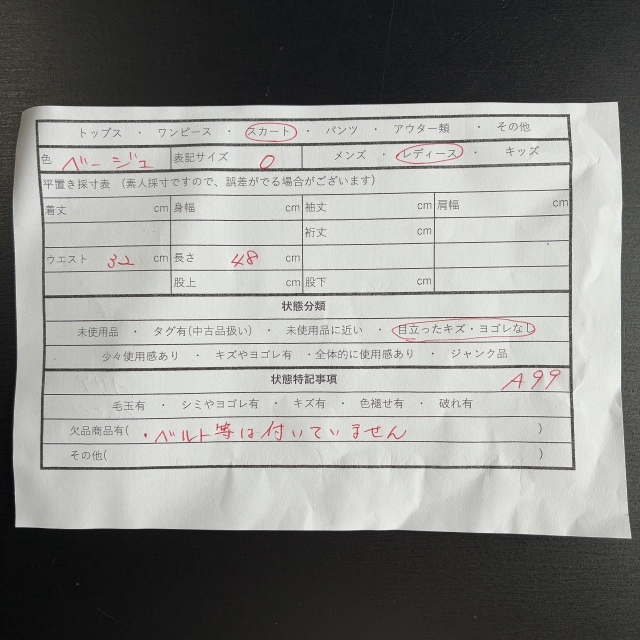 トップス ・ ワンピース ・ スカート ・ パンツ ・ アウター類 ・ その他
色 ベージュ 表記サイズ 0 メンズ ・ レディース ・ キッズ
平置き採寸表 (素人採寸ですので、誤差がでる場合がございます)
着丈 cm 身幅 cm 袖丈 cm 肩幅 cm
裄丈 cm
ウエスト 32 cm 長さ 48 cm
股上 cm 股下 cm
状態分類
未使用品 ・ タグ有(中古品扱い) ・ 未使用品に近い ・ 目立ったキズ・ヨゴレなし
少々使用感あり ・ キズやヨゴレ有 ・全体的に使用感あり ・ ジャンク品
状態特記事項 A99
毛玉有 ・ シミやヨゴレ有 ・ キズ有 ・ 色褪せ有 ・ 破れ有
欠品商品有( ・ベルト等は付いていません )
その他( )